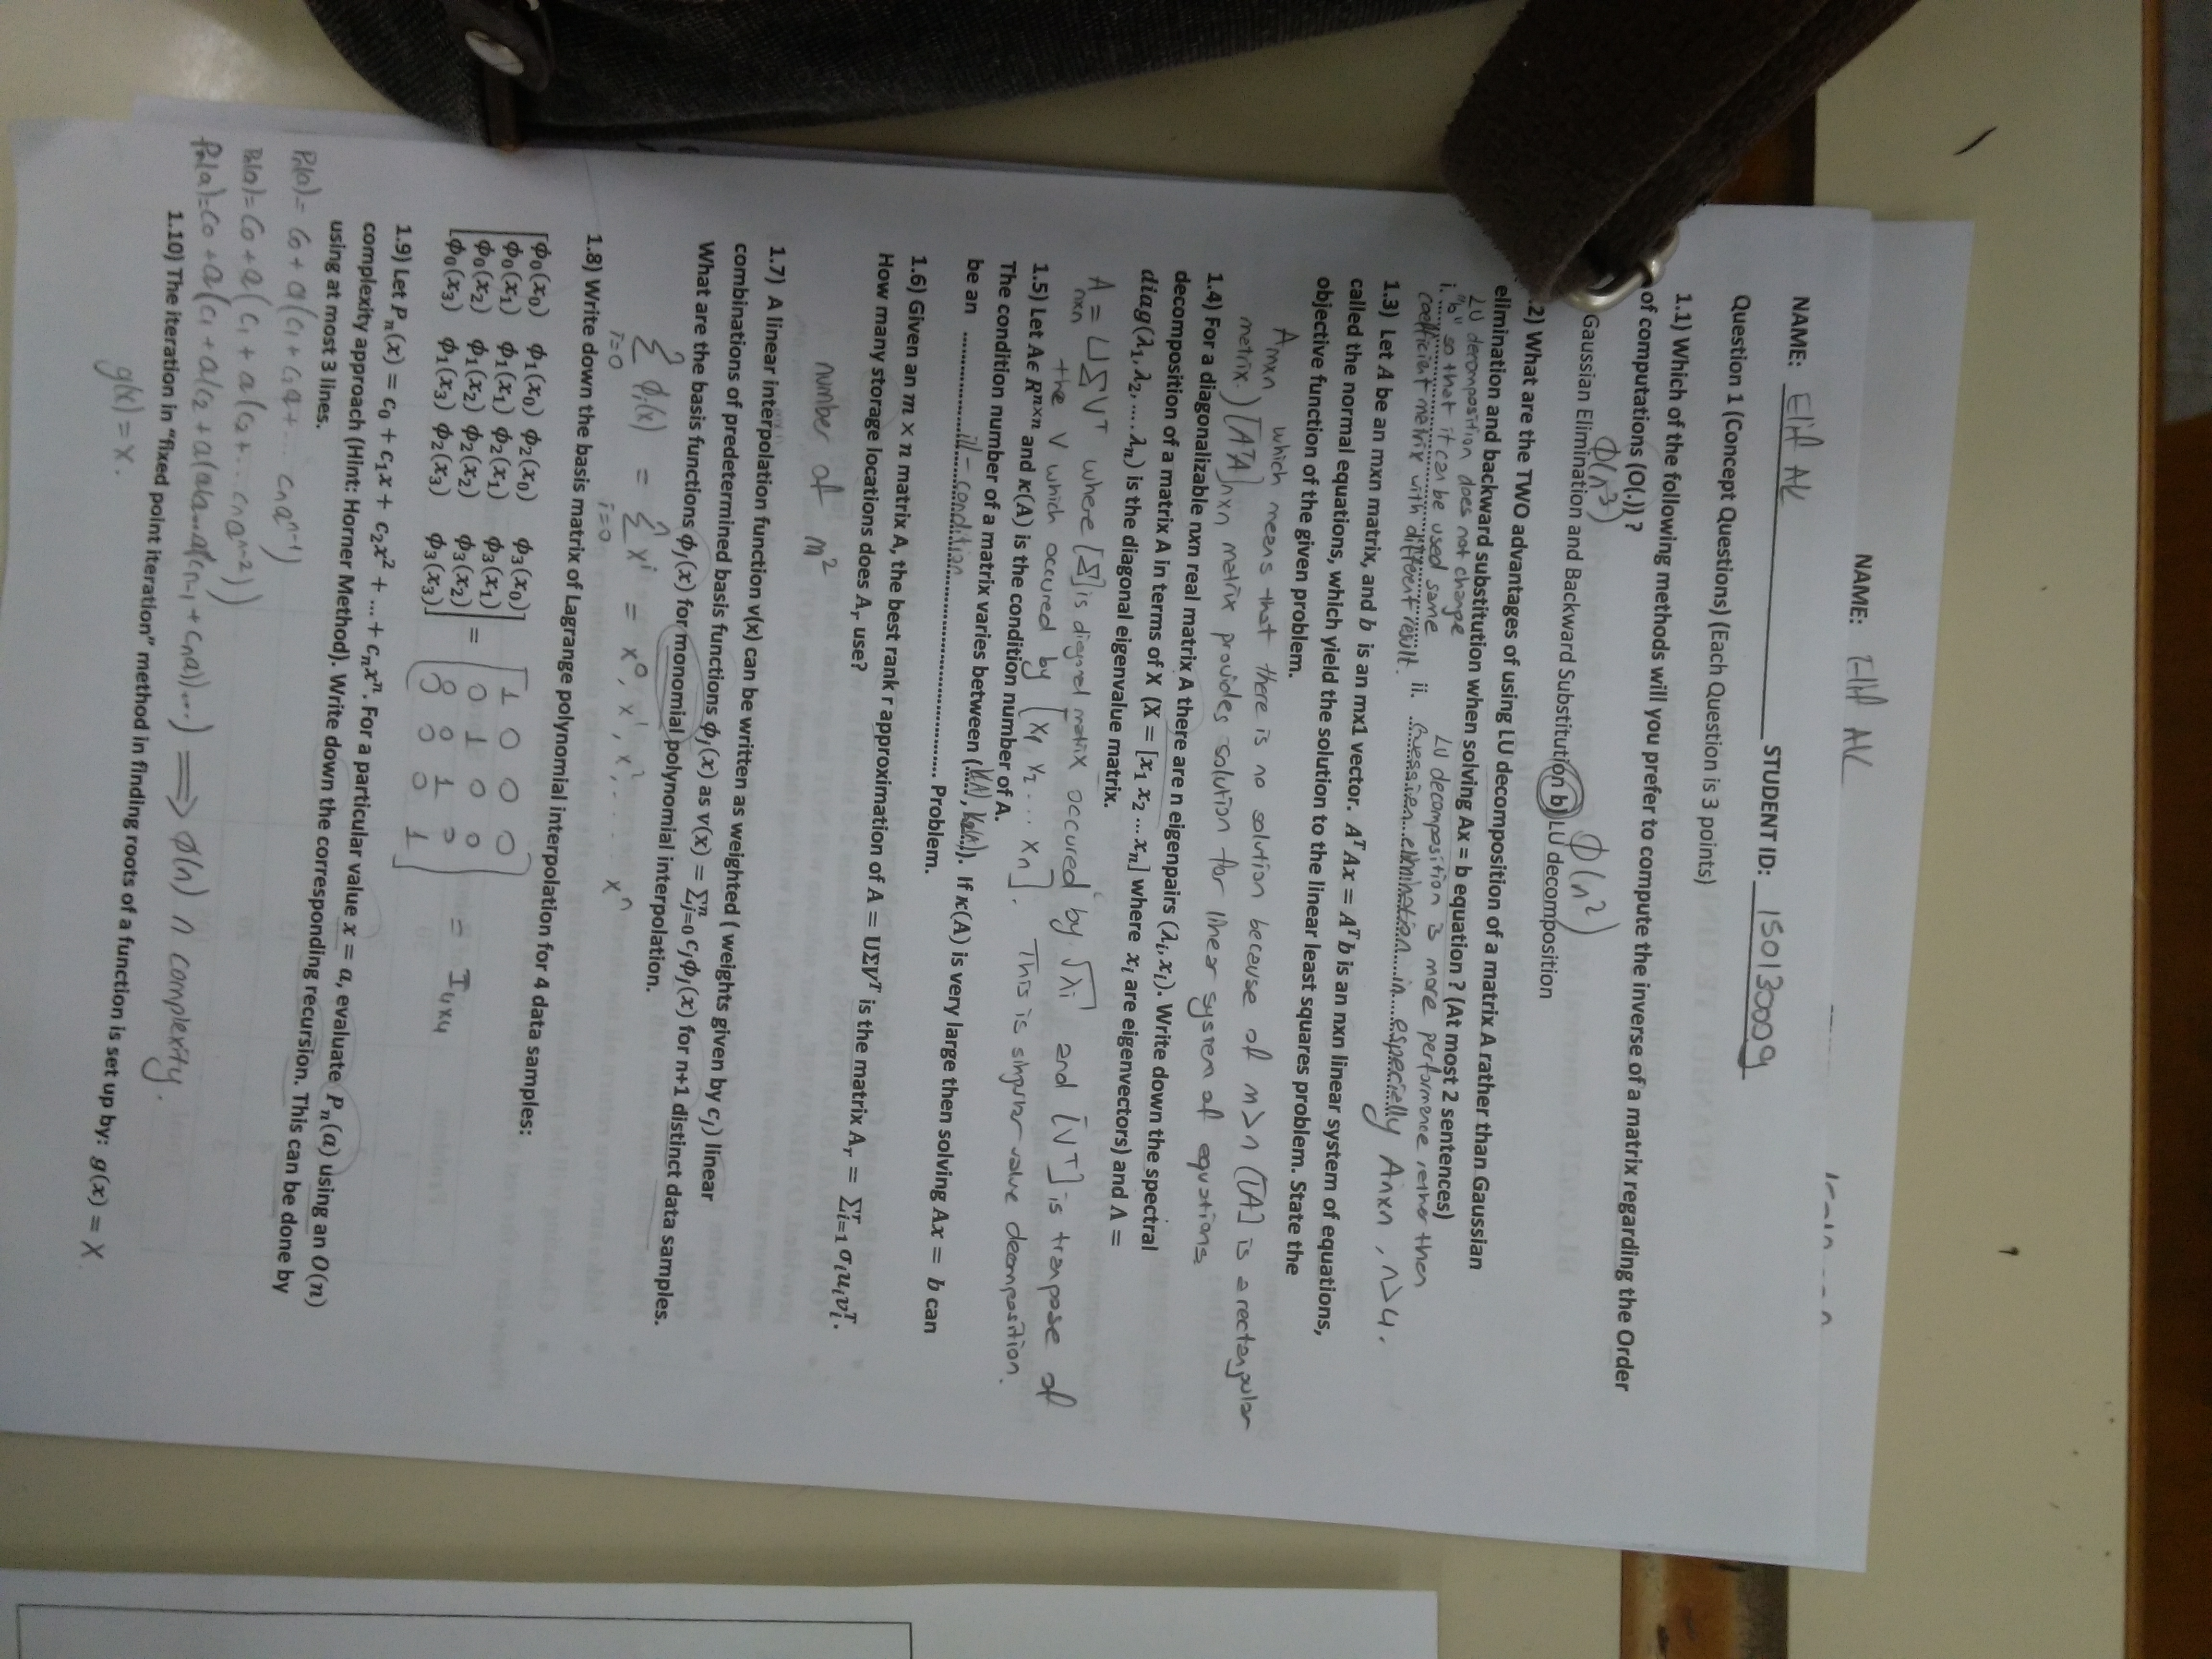 NAME: Elif AK
NAME: Elif AK STUDENT ID: 150130009
Question 1 (Concept Questions) (Each Question is 3 points)
1.1) Which of the following methods will you prefer to compute the inverse of a matrix regarding the Order
of computations (O(.)) ?
Φ(n³) Φ(n²)
Gaussian Elimination and Backward Substitution b) LU decomposition
.2) What are the TWO advantages of using LU decomposition of a matrix A rather than Gaussian
elimination and backward substitution when solving Ax = b equation ? (At most 2 sentences)
LU decomposition does not change
i. "b" so that it can be used same
coefficient matrix with different result.
LU decomposition is more performance rether then
ii. Guessian elimination in especially Anxn, n>4.
1.3) Let A be an mxn matrix, and b is an mx1 vector. AᵀAx = Aᵀb is an nxn linear system of equations,
called the normal equations, which yield the solution to the linear least squares problem. State the
objective function of the given problem.
Amxn which means that there is no solution because of m>n ([A] is a rectangular
metrix.) [AᵀA]nxn metrix provides solution for liner system of equations
1.4) For a diagonalizable nxn real matrix A there are n eigenpairs (λᵢ, xᵢ). Write down the spectral
decomposition of a matrix A in terms of X (X = [x₁ x₂ ... xₙ] where xᵢ are eigenvectors) and Λ =
diag(λ₁, λ₂, .... λₙ) is the diagonal eigenvalue matrix.
Anxn = UΣVᵀ where [Σ] is diegonel matrix occured by √λᵢ and [Vᵀ] is tranpose of
the V which occured by [x₁ x₂ ... xₙ]. This is singular value decomposition.
1.5) Let Aϵ Rⁿˣⁿ and κ(A) is the condition number of A.
The condition number of a matrix varies between (K(A), K₂(A)). If κ(A) is very large then solving Ax = b can
be an ill-condition Problem.
1.6) Given an m × n matrix A, the best rank r approximation of A = UΣVᵀ is the matrix Aᵣ = Σʳᵢ₌₁ σᵢuᵢvᵢᵀ.
How many storage locations does Aᵣ use?
number of m²
1.7) A linear interpolation function v(x) can be written as weighted ( weights given by cⱼ) linear
combinations of predetermined basis functions ϕⱼ(x) as v(x) = Σⁿⱼ₌₀ cⱼϕⱼ(x) for n+1 distinct data samples.
What are the basis functions ϕⱼ(x) for monomial polynomial interpolation.
Σᵢ₌₀ ϕᵢ(x) = Σⁿᵢ₌₀ xⁱ = x⁰, x¹, x², .... xⁿ
1.8) Write down the basis matrix of Lagrange polynomial interpolation for 4 data samples:
ϕ₀(x₀) ϕ₁(x₀) ϕ₂(x₀) ϕ₃(x₀) 1 0 0 0
ϕ₀(x₁) ϕ₁(x₁) ϕ₂(x₁) ϕ₃(x₁) = 0 1 0 0 = I₄ₓ₄
ϕ₀(x₂) ϕ₁(x₂) ϕ₂(x₂) ϕ₃(x₂) 0 0 1 0
ϕ₀(x₃) ϕ₁(x₃) ϕ₂(x₃) ϕ₃(x₃) 0 0 0 1
1.9) Let Pₙ(x) = c₀ + c₁x + c₂x² + ... + cₙxⁿ. For a particular value x = a, evaluate Pₙ(a) using an O(n)
complexity approach (Hint: Horner Method). Write down the corresponding recursion. This can be done by
using at most 3 lines.
Pₙ(a)= c₀ + a(c₁ + c₂a + ... cₙaⁿ⁻¹)
Pₙ(a)= c₀ + a(c₁ + a(c₂ + ... cₙaⁿ⁻²))
Pₙ(a)=c₀ + a(c₁ + a(c₂ + a(a(a...a(cₙ₋₁ + cₙa))...) ⟹ ϕ(n) n complexity.
1.10) The iteration in "fixed point iteration" method in finding roots of a function is set up by: g(x) = X
g(x) = x.